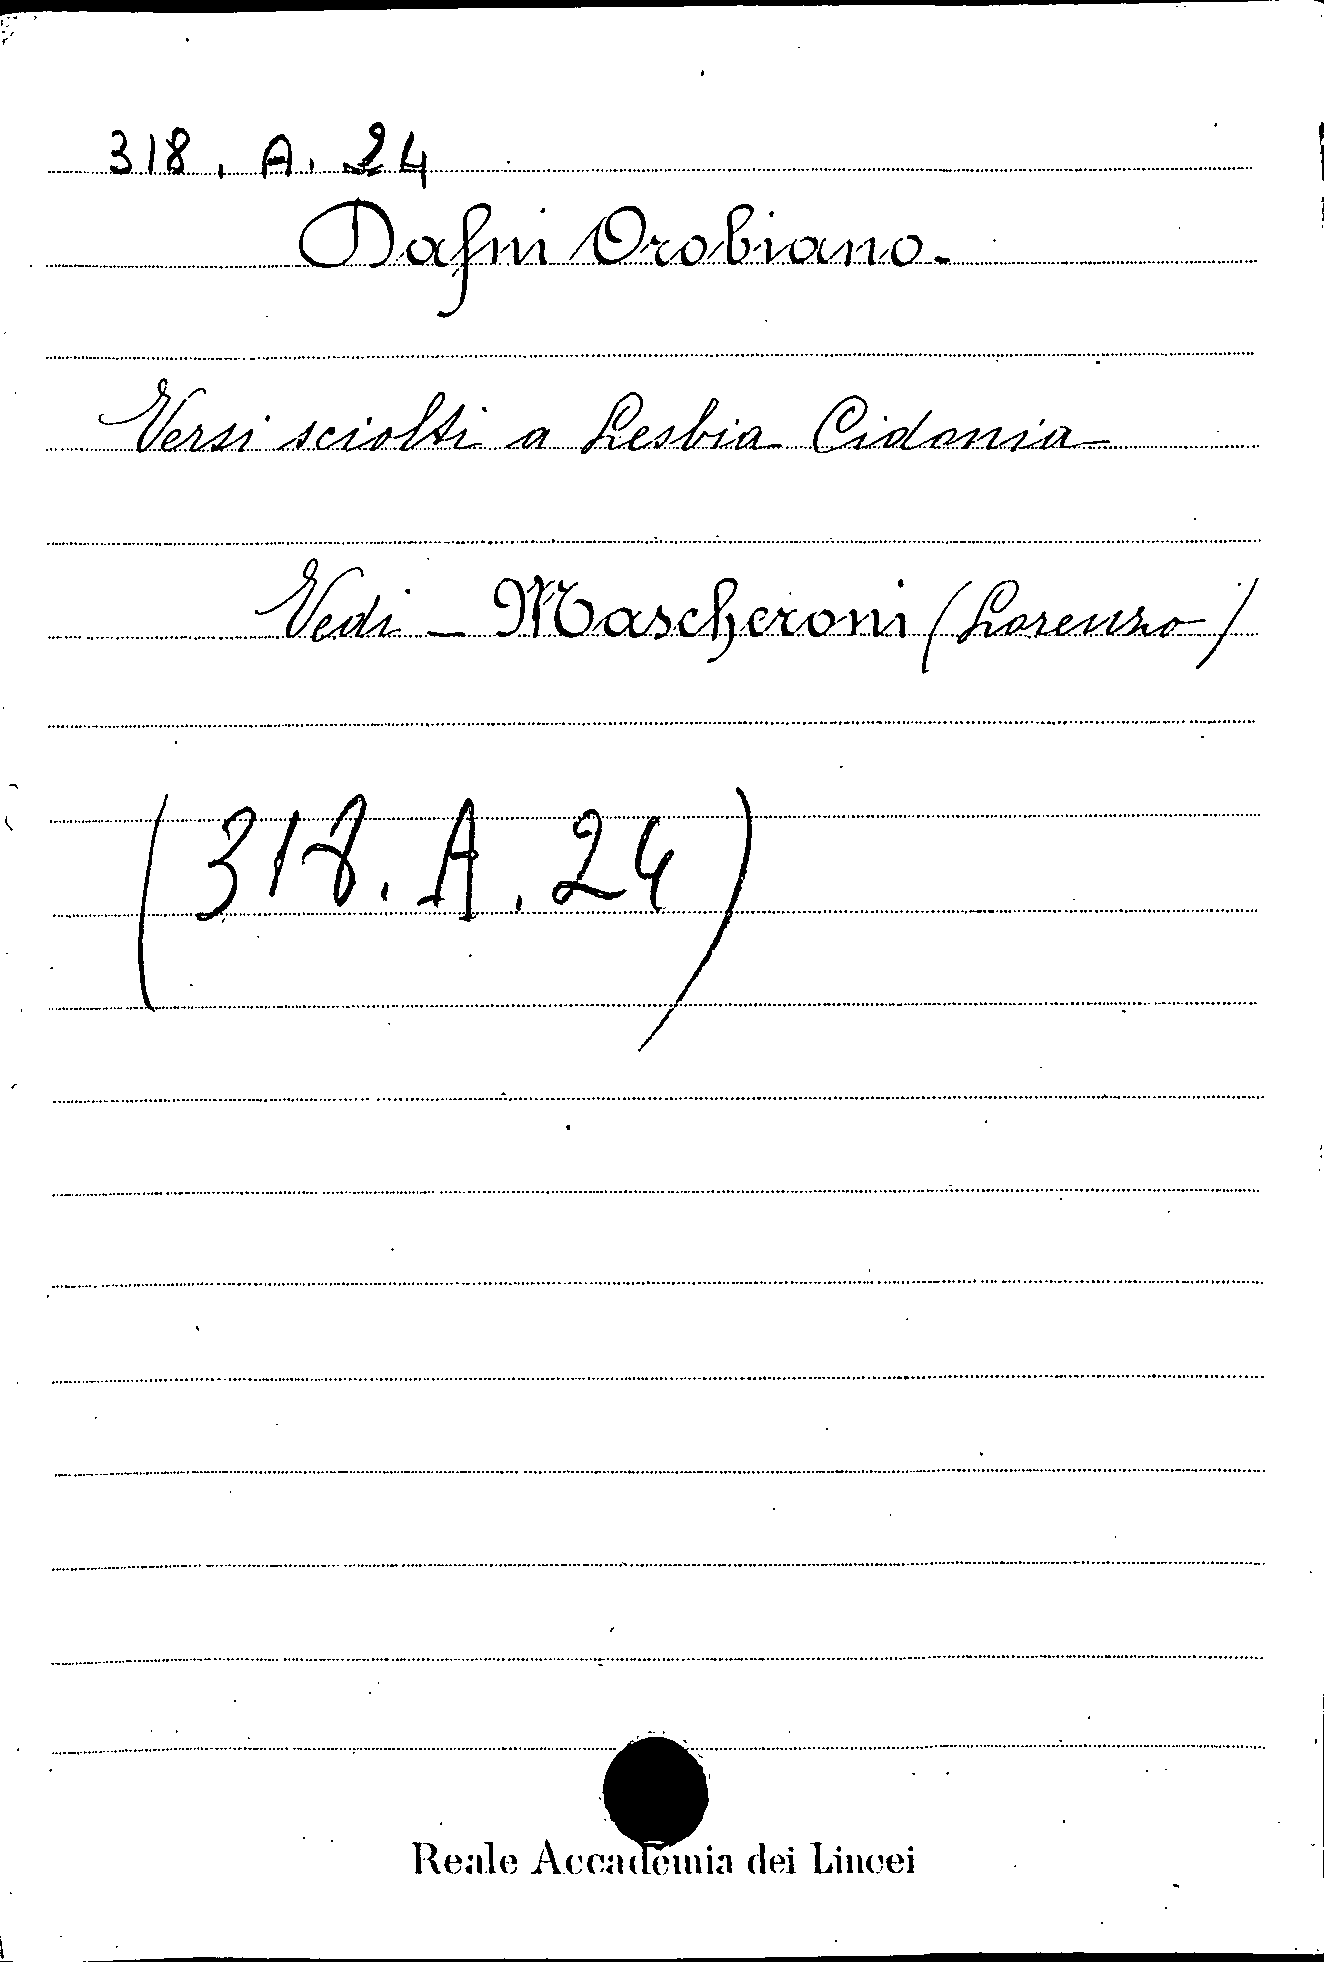 318. A. 24
Dafni Orobiano.
Versi sciolti a Lesbia Cidonia
Vedi - Mascheroni (Lorenzo)
(318. A. 24)
Reale Accademia dei Lincei